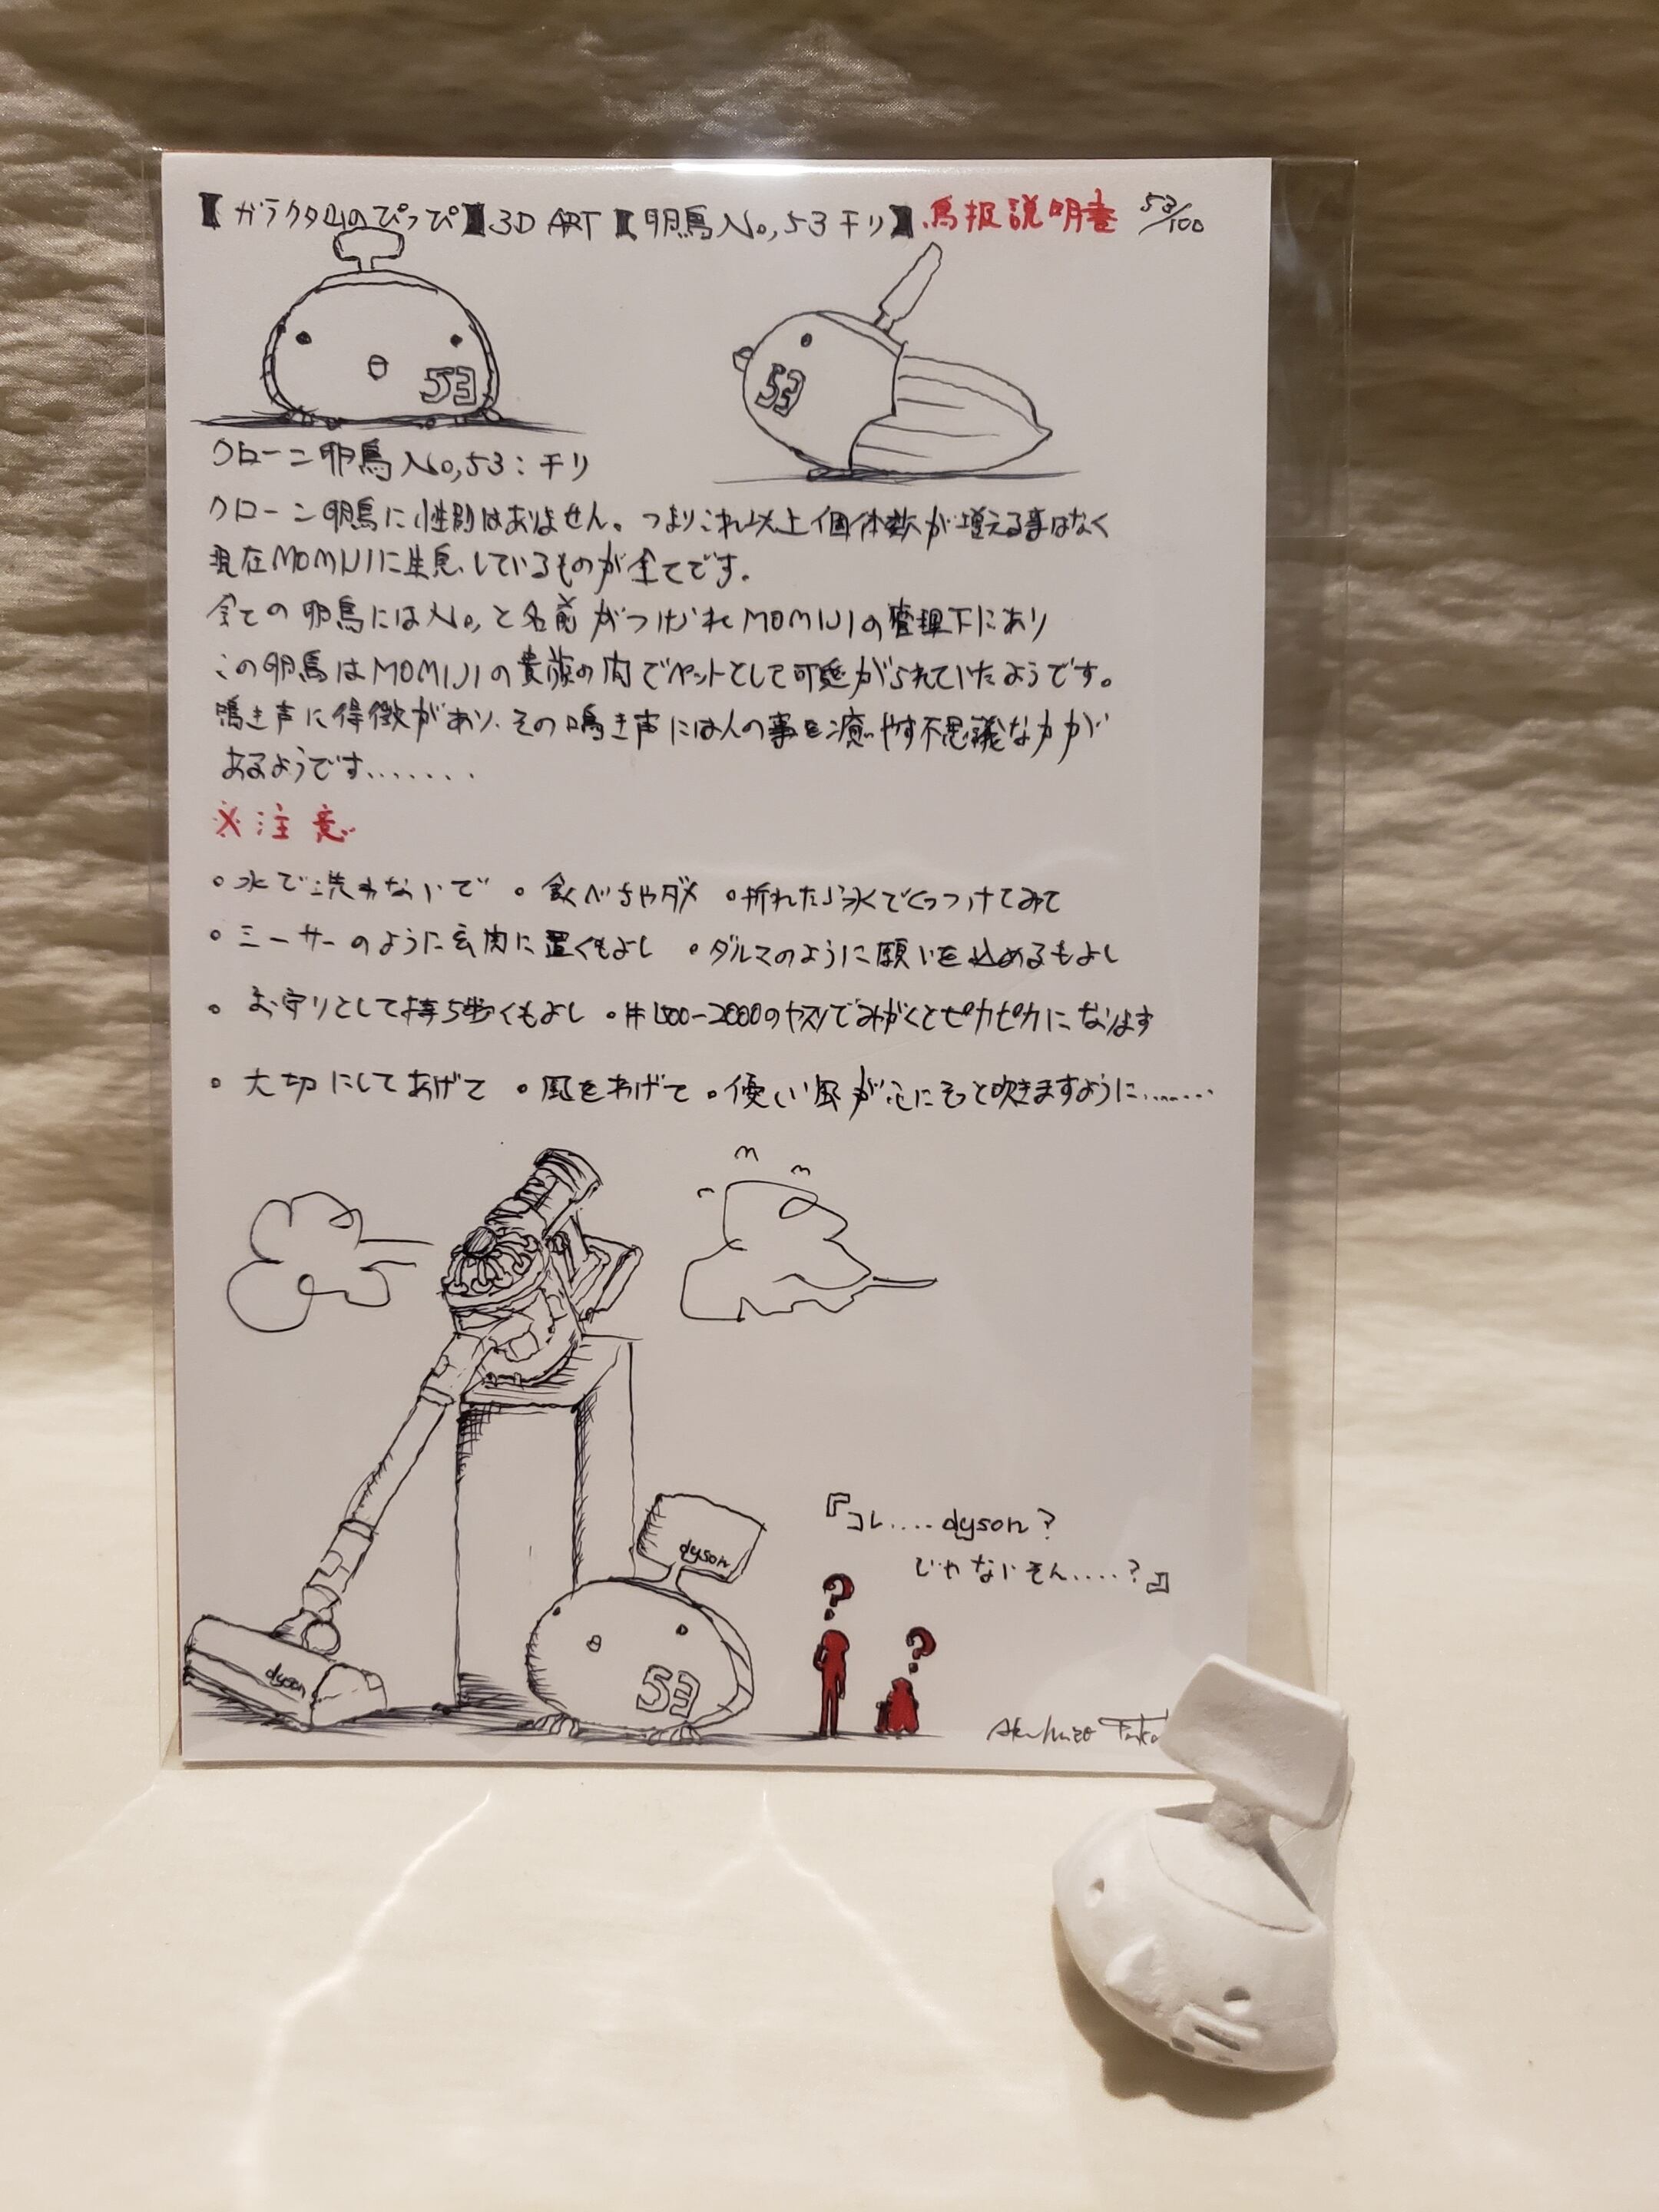 【ガラクタ山のぴっぴ】3D ART【卵鳥No,53チリ】鳥扱説明書 53/100
53
53
クローン卵鳥No,53:チリ
クローン卵鳥に性別はありません。つまりこれ以上個体数が増える事はなく
現在MOMIJIに生息しているものが全てです。
全ての卵鳥にはNo,と名前がつけられMOMIJIの管理下にあり
この卵鳥はMOMIJIの貴族の内でペットとして可愛がられていたようです。
鳴き声に特徴があり、その鳴き声には人の事を癒やす不思議な力が
あるようです.......
※注意
・水で洗わないで ・食べちゃダメ ・折れたら氷でくっつけてみて
・ミーサーのように玄関に置くもよし ・ダルマのように願いを込めるもよし
・お守りとして持ち歩くもよし ・#1500-2000のヤスリでみがくとピカピカになります
・大切にしてあげて ・風をあげて ・優しい風が心にそっと吹きますように........
『コレ....dyson?
じゃないそん....?』
dyson
dyson
53
?
?